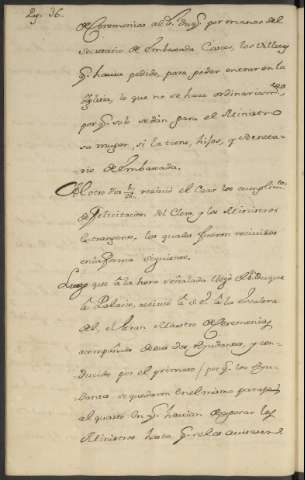 Pag. 36.
de Ceremonias al S.r Duq.e por mano del
Secretario de Embaxada Caar, los Villetes
q.e havia pedido, para poder entrar en la
Iglesia, lo que no se hace ordinariam.te
porq.e solo se dan para el Ministro
su muger, si la tiene, hijos, y Secreta-
rio de Embaxada.
Al otro dia recivió el Czar los cumplim.tos
de felicitacion del Clero, y los Ministros
Extrangeros, los quales fueron recividos
en la forma siguiente.
Luego que à la hora señalada llegó el Duque
à Palacio, recivió à S.E. à la Escalera
del, el Gran Maestro de Ceremonias
acompañado de sus dos Ayudantes, y con-
ducido por el primero / porq.e los Ayu-
dantes se quedaron en el mismo parage
al quarto en q.e havian de parar los
Ministros hasta q.e se los avisase